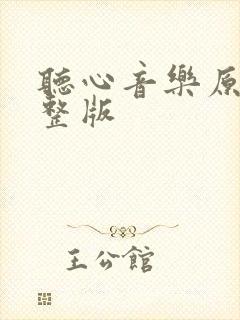 聽心音樂原
整版
王公館